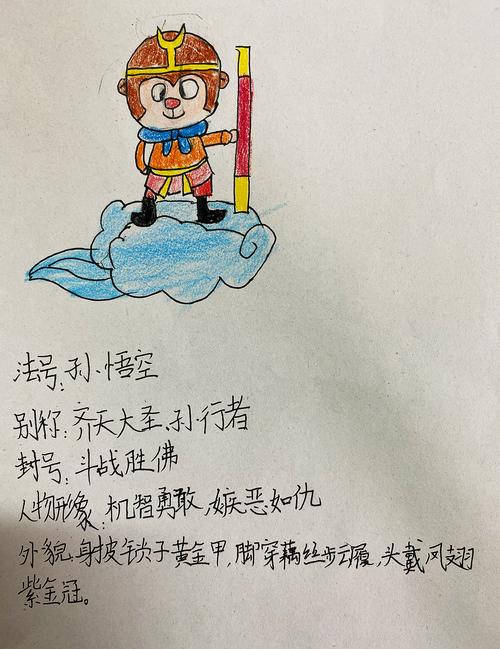 法号:孙悟空
别称:齐天大圣、孙行者
封号:斗战胜佛
人物形象:机智勇敢,嫉恶如仇
外貌:身披锁子黄金甲,脚穿藕丝步云履,头戴凤翅
紫金冠。